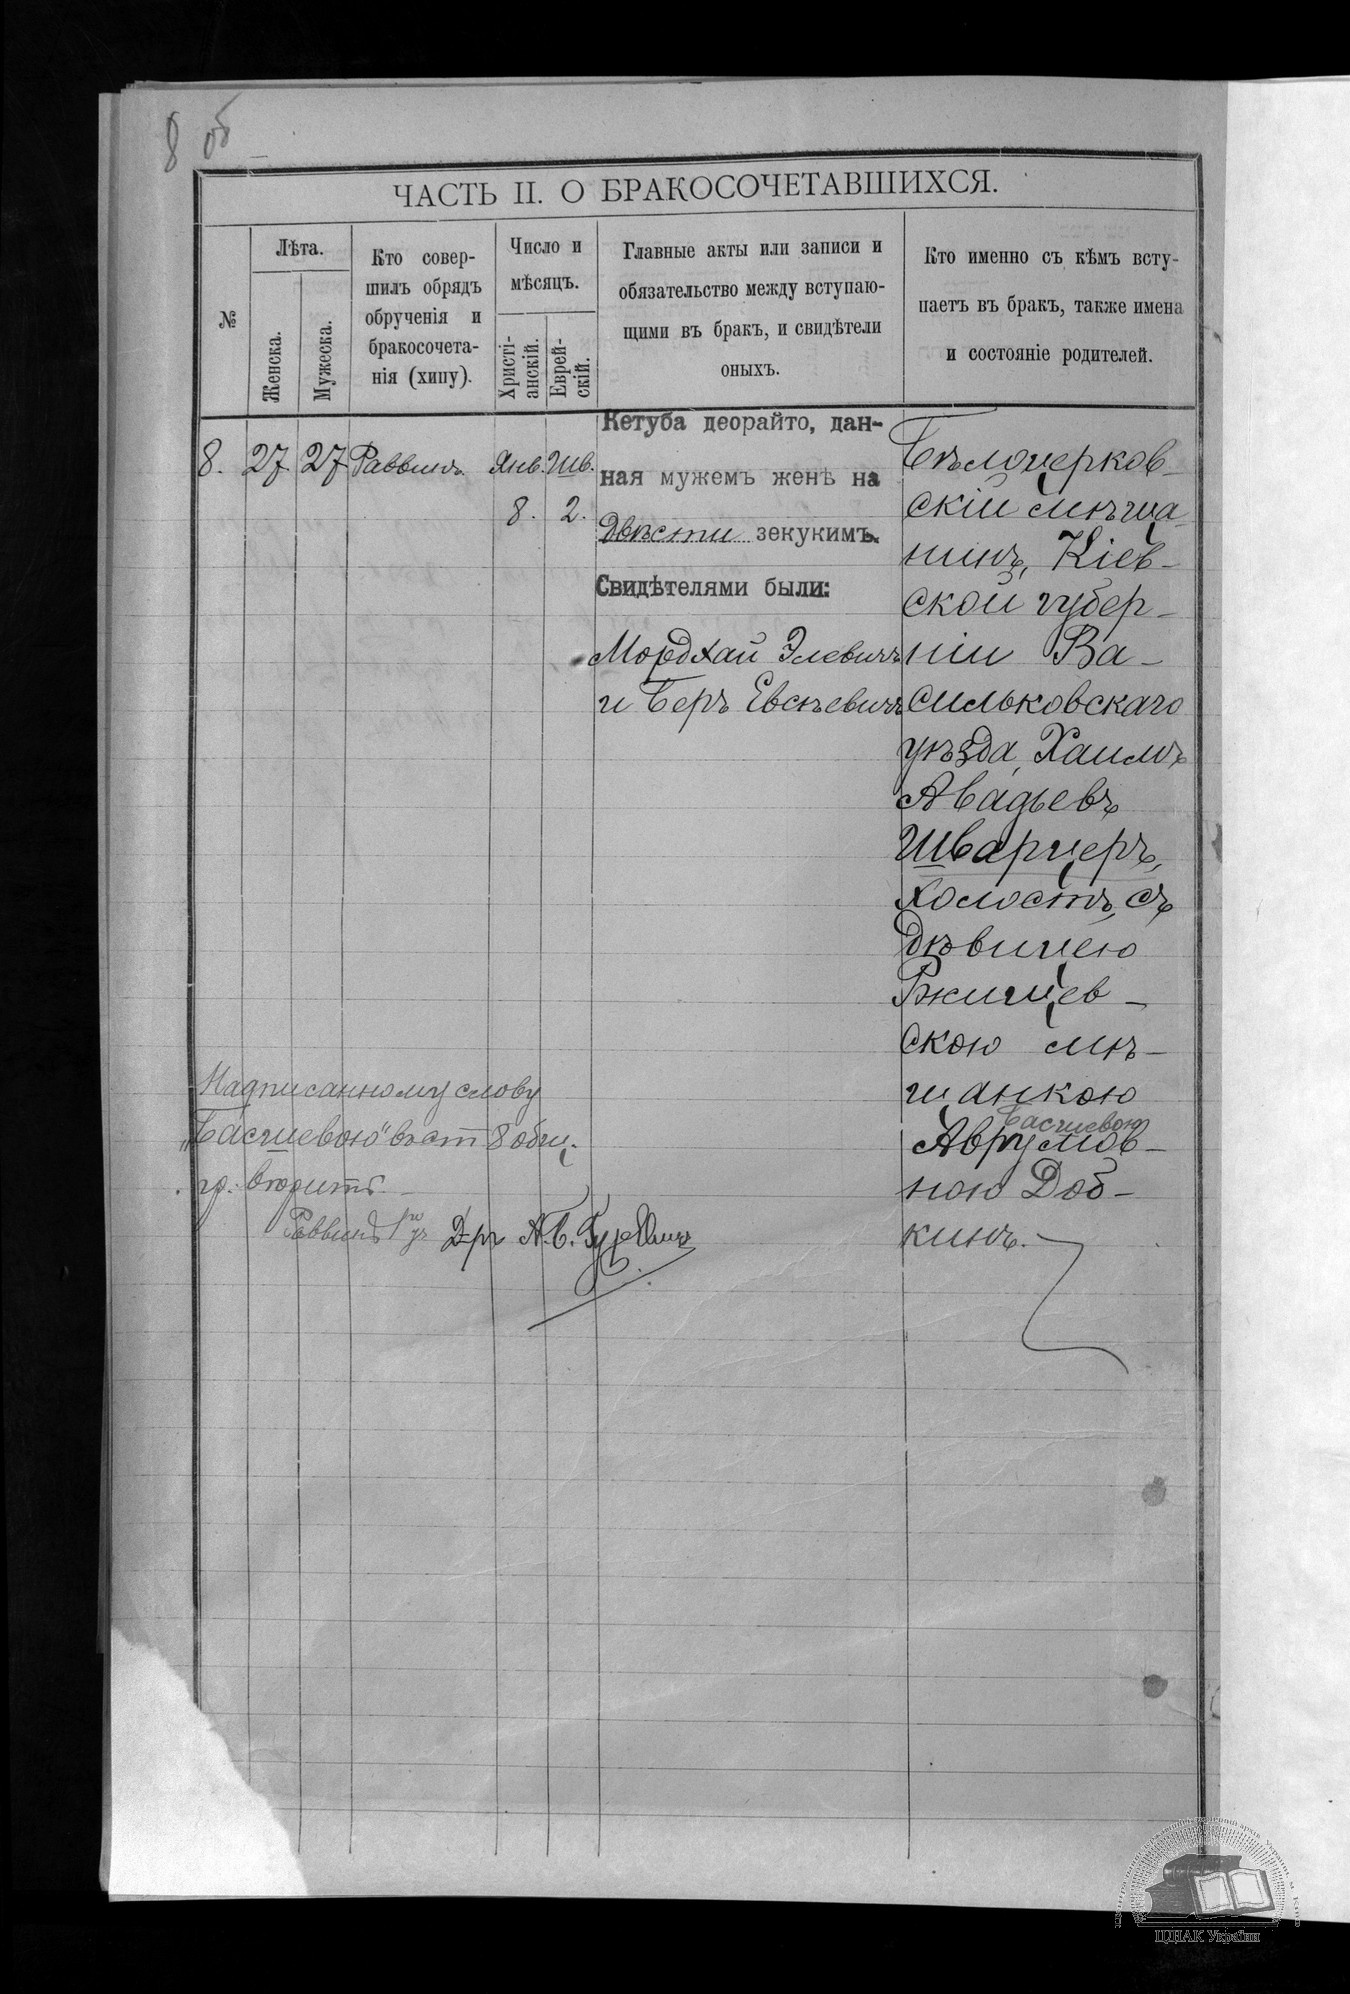 8 об
ЧАСТЬ II. О БРАКОСОЧЕТАВШИХСЯ.
№
Лѣта.
Женска.
Мужеска.
Кто совер-
шилъ обрядъ
обрученія и
бракосочета-
нія (хипу).
Число и
мѣсяцъ.
Христі-
анскій.
Еврей-
скій.
Главные акты или записи и
обязательство между вступаю-
щими въ бракъ, и свидѣтели
оныхъ.
Кто именно съ кѣмъ всту-
паетъ въ бракъ, также имена
и состояніе родителей.
8. 27 27 Раввинъ Янв. Шв.
8. 2.
Кетуба деорайто, дан-
ная мужемъ женѣ на
Двѣсти зекукимъ.
Свидѣтелями были:
Мордхай Элевичъ
и Беръ Евсѣевичъ
Бѣлоцерков-
скій мѣща-
нинъ, Кіев-
ской губер-
ніи Ва-
сильковскаго
уѣзда, Хаимъ
Авадьевъ
Шварцеръ,
холостъ, съ
дѣвицею
Ржищев-
скою мѣ-
щанкою
Басшевою
Аврумов-
ною Доб-
кинъ.
Надписанному слову
„Басшевою" въ ст 8 общ.
гр. вѣрить.
Раввинъ Д-ръ А. Б. Гуревичъ
ЦДІАК України